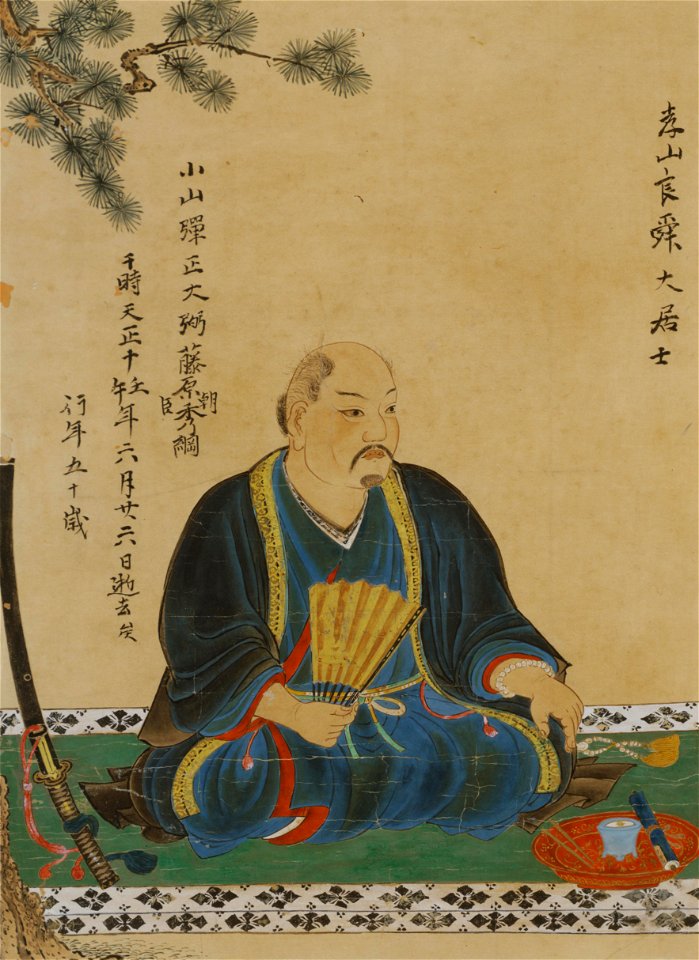 孝山良舜大居士
小山彈正大弼藤原朝臣秀綱
于時天正十壬午年六月廿六日逝去矣
行年五十歳